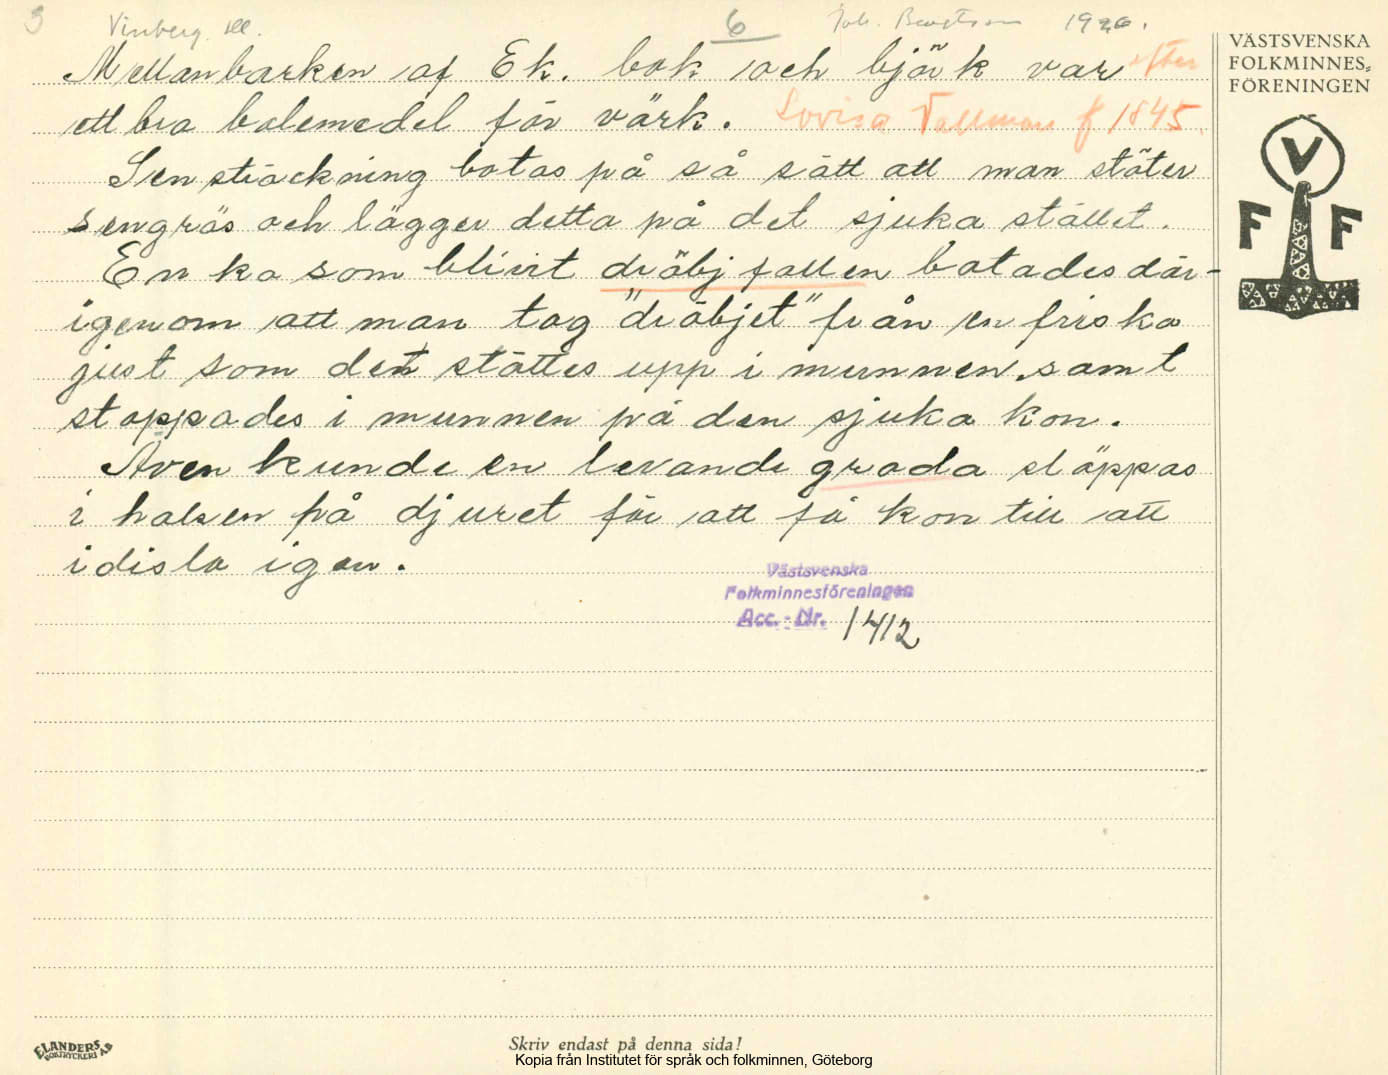 3 Vinberg. Hll. 6 Joh. Bengtsson 1926.
Mellanbarken af Ek. bok och björk var efter
ett bra botemedel för värk. Lovisa Tallman f 1845.
Sensträckning botas på så sätt att man stöter
sengräs och lägger detta på det sjuka stället.
En ko som blivit dröbjfallen botades där-
igenom att man tog "dröbjet" från en frisk ko
just som det stöttes upp i munnen, samt
stoppades i munnen på den sjuka kon.
Även kunde en levande groda släppas
i halsen på djuret för att få kon till att
idisla igen.
Västsvenska
Folkminnesföreningen
Acc. - Nr. 1412
VÄSTSVENSKA
FOLKMINNES-
FÖRENINGEN
V
F F
ELANDERS
BOKTRYCKERI AB
Skriv endast på denna sida!
Kopia från Institutet för språk och folkminnen, Göteborg